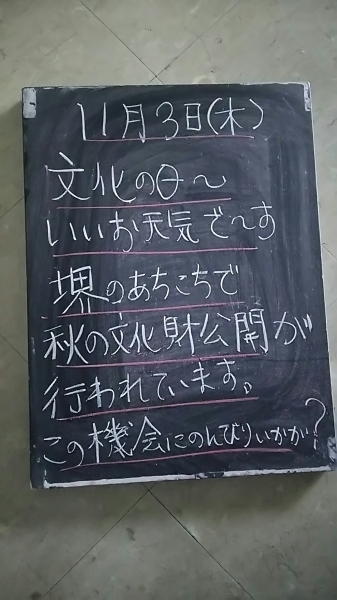 11月3日(木)
文化の日〜
いいお天気で〜す
堺のあちこちで
秋の文化財公開が
行われています。
この機会にのんびりいかが?